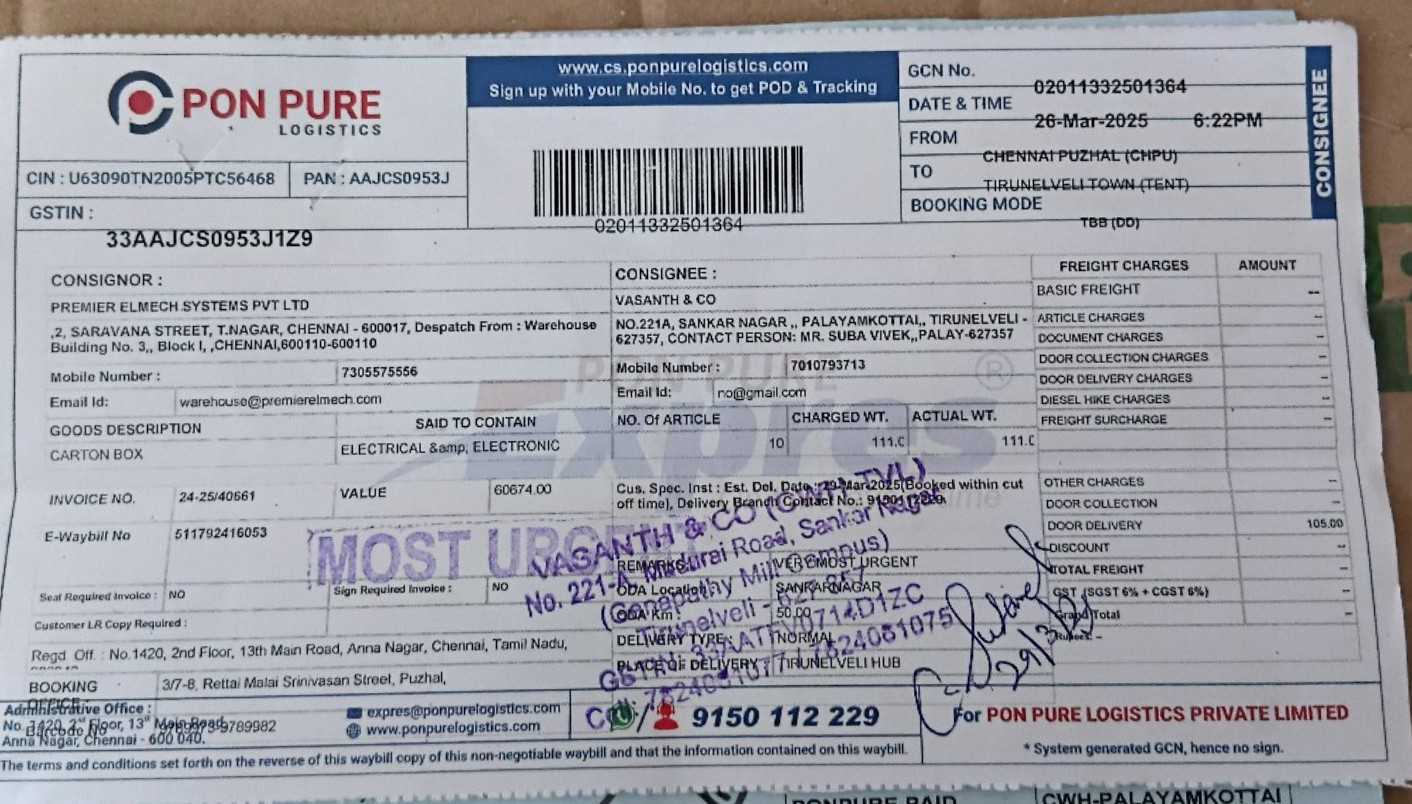 PON PURE
LOGISTICS
www.cs.ponpurelogistics.com
Sign up with your Mobile No. to get POD & Tracking
GCN No. 02011332501364
DATE & TIME 26-Mar-2025 6:22PM
FROM CHENNAI PUZHAL (CHPU)
TO TIRUNELVELI TOWN (TENT)
BOOKING MODE TBB (DD)
CONSIGNEE
CIN : U63090TN2005PTC56468 PAN : AAJCS0953J
GSTIN :
33AAJCS0953J1Z9
02011332501364
CONSIGNOR :
PREMIER ELMECH SYSTEMS PVT LTD
,2, SARAVANA STREET, T.NAGAR, CHENNAI - 600017, Despatch From : Warehouse
Building No. 3,, Block I, ,CHENNAI,600110-600110
Mobile Number : 7305575556
Email Id: warehouse@premierelmech.com
CONSIGNEE :
VASANTH & CO
NO.221A, SANKAR NAGAR ,, PALAYAMKOTTAI,, TIRUNELVELI -
627357, CONTACT PERSON: MR. SUBA VIVEK,,PALAY-627357
Mobile Number : 7010793713
Email Id: no@gmail.com
PON PURE
Expres
®
GOODS DESCRIPTION SAID TO CONTAIN NO. Of ARTICLE CHARGED WT. ACTUAL WT.
CARTON BOX ELECTRICAL &amp; ELECTRONIC 10 111.0 111.0
INVOICE NO. 24-25/40661 VALUE 60674.00
Cus. Spec. Inst : Est. Del. Date : 29-Mar-2025(Booked within cut
off time), Delivery Branch Contact No.:
E-Waybill No 511792416053
MOST URGENT
REMARKS: MOST URGENT
ODA Location: SANKARNAGAR
ODA Km : 50.00
DELIVERY TYPE: NORMAL
PLACE OF DELIVERY : TIRUNELVELI HUB
Seat Required Invoice : NO Sign Required Invoice : NO
Customer LR Copy Required :
VASANTH & CO (CWH TVL)
No. 221-A, Madurai Road, Sankar Nagar
(Ganapathy Mill Campus)
Tirunelveli - 627 357
7824081077 / 7824081075
FREIGHT CHARGES AMOUNT
BASIC FREIGHT --
ARTICLE CHARGES --
DOCUMENT CHARGES --
DOOR COLLECTION CHARGES --
DOOR DELIVERY CHARGES --
DIESEL HIKE CHARGES --
FREIGHT SURCHARGE --
OTHER CHARGES --
DOOR COLLECTION --
DOOR DELIVERY 105.00
DISCOUNT --
TOTAL FREIGHT --
GST (SGST 6% + CGST 6%) --
Grand Total --
Rupees: --
29/3/25
Regd. Off. : No.1420, 2nd Floor, 13th Main Road, Anna Nagar, Chennai, Tamil Nadu,
BOOKING OFFICE : 3/7-8, Rettai Malai Srinivasan Street, Puzhal,
Administrative Office :
No. 1420, 2nd Floor, 13th Main Road,
Anna Nagar, Chennai - 600 040.
Barcode No
expres@ponpurelogistics.com
www.ponpurelogistics.com
9150 112 229
For PON PURE LOGISTICS PRIVATE LIMITED
* System generated GCN, hence no sign.
The terms and conditions set forth on the reverse of this waybill copy of this non-negotiable waybill and that the information contained on this waybill.
PONPURE PAID
CWH-PALAYAMKOTTAI